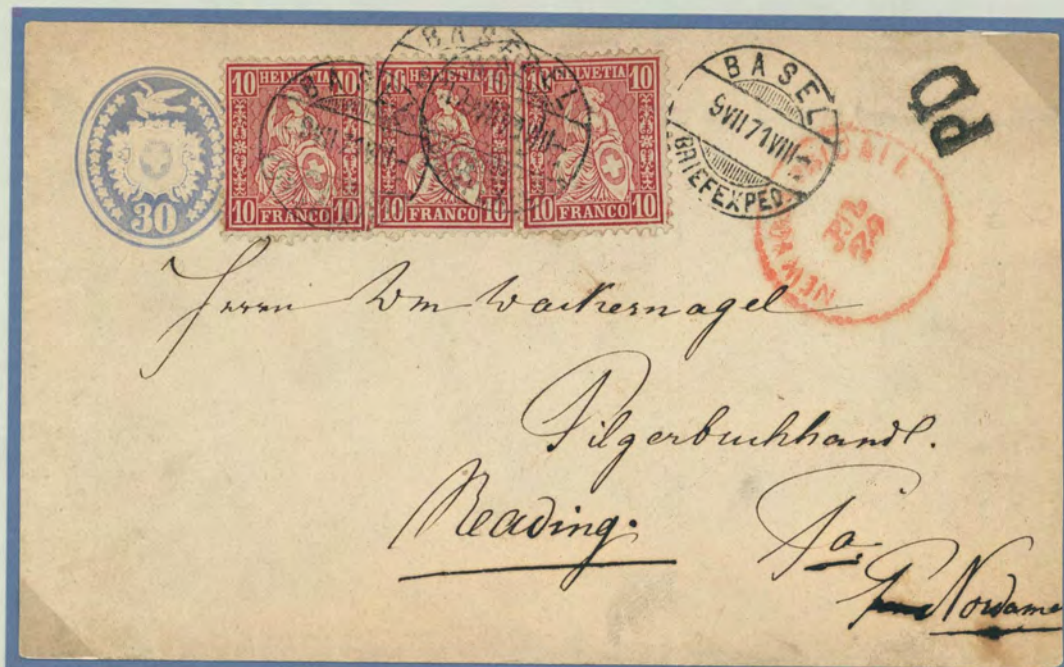 30
10 HELVETIA 10
10 FRANCO 10
10 HELVETIA 10
10 FRANCO 10
10 HELVETIA 10
10 FRANCO 10
BASEL
9 VII 71 VIII
BRIEFEXPED.
PD
NEW
PAID ALL
JUL
24
Herrn Wm Wackernagel
Pilgerbuchhandl.
Reading. Pa
Nordame